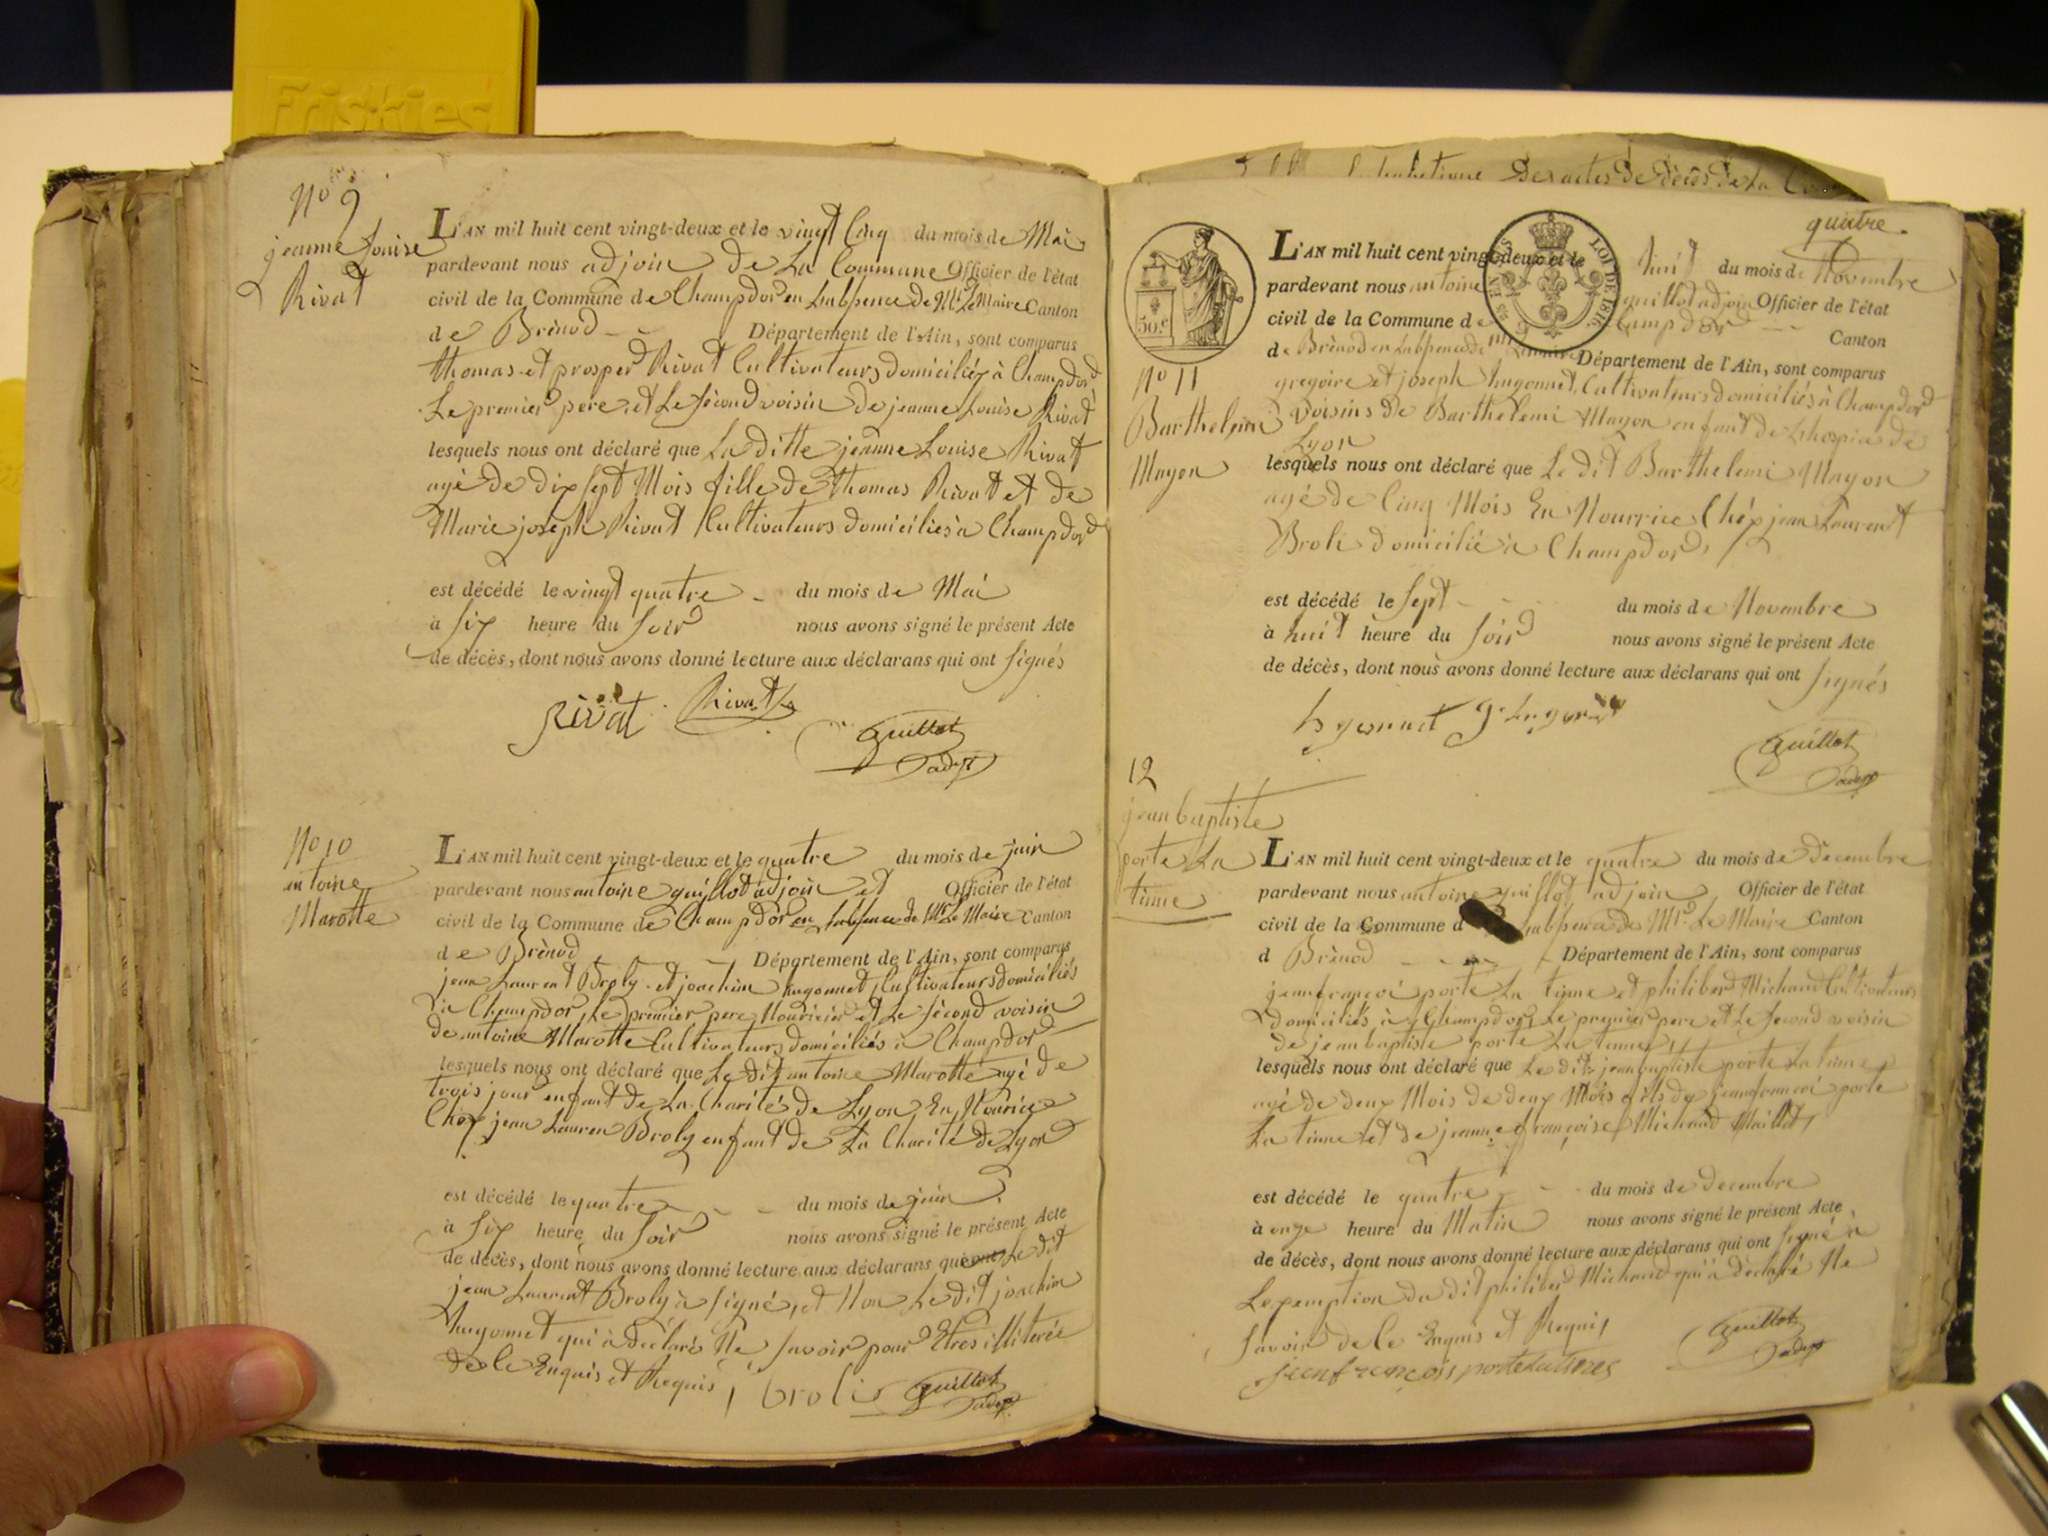 Friskies
No 9
jeanne Louise
Rivat
L'AN mil huit cent vingt-deux et le vingt Cinq du mois de Mai
pardevant nous adjoin de La Commune Officier de l'état
civil de la Commune de Champdor en Labsence de Mr Le Maire Canton
de Brénod Département de l'Ain, sont comparus
thomas et prosper Rivat Cultivateurs domiciliés à Champdor
Le premier pere, et Le sécond voisin de jeanne Louise Rivat
lesquels nous ont déclaré que La ditte jeanne Louise Rivat
agé de dix sept Mois fille de thomas Rivat et de
Marie joseph Rivat Cultivateurs domiciliés à Champdor
est décédé le vingt quatre du mois de Mai
à six heure du soir nous avons signé le présent Acte
de décès, dont nous avons donné lecture aux déclarans qui ont signés
Rivat Rivat
Guillot
adjt
No 10
antoine
Marotte
L'AN mil huit cent vingt-deux et le quatre du mois de juin
pardevant nous antoine guillot adjoin et Officier de l'état
civil de la Commune de Champdor en Labsence de Mr Le Maire Canton
de Brénod Département de l'Ain, sont comparus
jean Laurent Broly et joachim hugonnet, Cultivateurs domiciliés
à Champdor, Le premier pere Nouricier et Le sécond voisin
de antoine Marotte Cultivateurs domiciliés à Champdor
lesquels nous ont déclaré que Le dit antoine Marotte agé de
trois jour enfant de La Charité de Lyon En Nourice
Chez jean Lauren Broly enfant de La Charité de Lyon
est décédé le quatre du mois de juin
à six heure du soir nous avons signé le présent Acte
de décès, dont nous avons donné lecture aux déclarans que Le dit
jean Laurent Broly à signé, et Non Le dit joachim
hugonnet qui à déclaré Ne savoir pour Etres illiterée
de ce Enquis et Requis broli Guillot
adjt
des actes de décès de La
quatre.
50.c.
LOI DE 1816
L'AN mil huit cent vingt-deux et le huit du mois de Novembre
pardevant nous antoine guillot adjoin Officier de l'état
civil de la Commune de Champdor Canton
de Brénod en Labsence de Mr Le maire Département de l'Ain, sont comparus
No 11
Barthelemi
Mayon
gregoire et joseph hugonnet, Cultivateurs domiciliés à Champdor
voisins de Barthelemi Mayon enfant de Lhospice de
Lyon
lesquels nous ont déclaré que Le dit Barthelemi Mayon
agé de Cinq Mois En Nourrice Chéz jean Laurent
Broli domicilié à Champdor
est décédé le sept du mois de Novembre
à huit heure du soir nous avons signé le présent Acte
de décès, dont nous avons donné lecture aux déclarans qui ont signés
Guillot
adjt
12
jean baptiste
porte La
tinne
L'AN mil huit cent vingt-deux et le quatre du mois de décembre
pardevant nous antoine guillot adjoin Officier de l'état
civil de la Commune d Labsence de Mr Le Maire Canton
d Brénod Département de l'Ain, sont comparus
jean françoi porte La tinne et philiber Michaud Cultivateurs
domiciliés à Champdor, Le premier pere et Le second voisin
de jean baptiste porte La tinne
lesquels nous ont déclaré que Le dit jean baptiste porte La tinne
agé de deux Mois de deux Mois fils de jean françoi porte
La tinne et de jeanne françoise Michaud Maillet
est décédé le quatre du mois de decembre
à onze heure du Matin nous avons signé le présent Acte
de décès, dont nous avons donné lecture aux déclarans qui ont signé à
Lexemption du dit philiber Michaud qui à déclaré Ne
savoir de ce Enquis et Requis
jean françois porte La tinne
Guillot
adjt